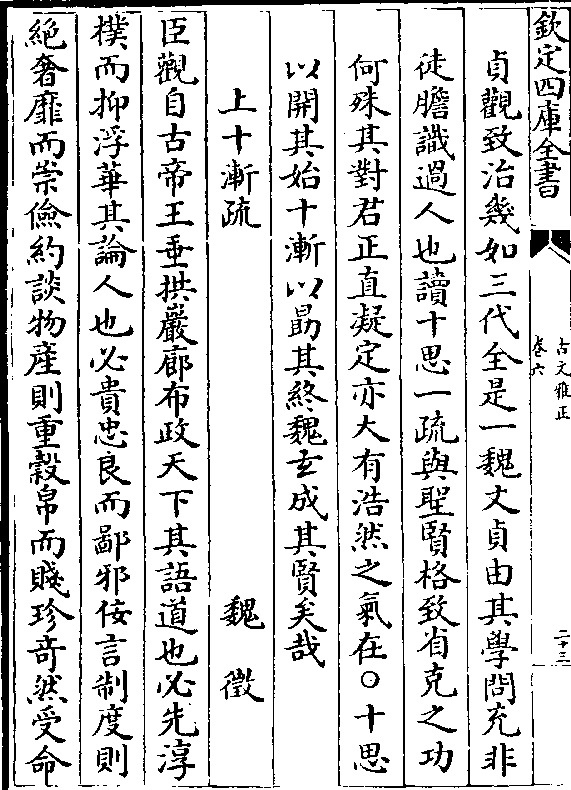 欽定四庫全書
古文雅正
卷六
二十三
貞觀致治幾如三代全是一魏文貞由其學問充非
徒膽識過人也讀十思一疏與聖賢格致省克之功
何殊其對君正直凝定亦大有浩然之氣在○十思
以開其始十漸以勗其終魏玄成其賢矣哉
上十漸疏 魏徵
臣觀自古帝王垂拱巖廊布政天下其語道也必先淳
樸而抑浮華其論人也必貴忠良而鄙邪佞言制度則
絕奢靡而崇儉約談物產則重穀帛而賤珍奇然受命